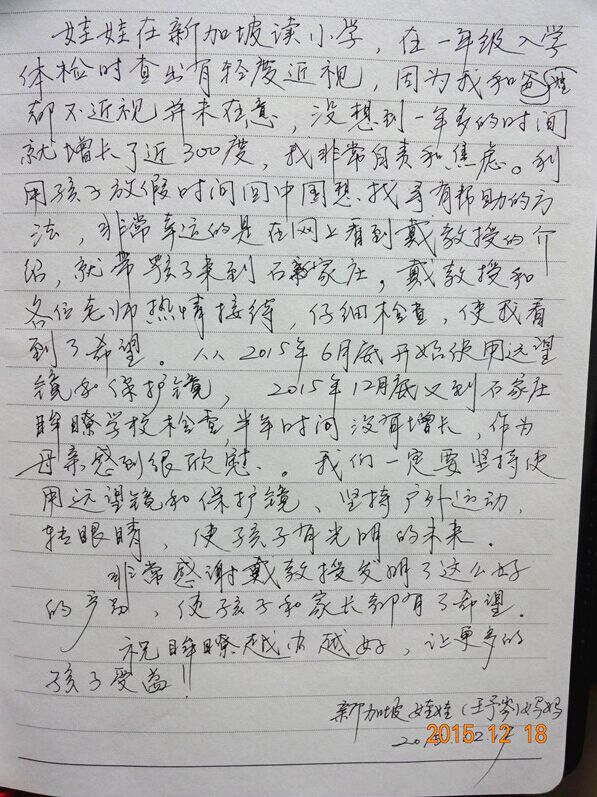 娃娃在新加坡读小学，在一年级入学
体检时查出有轻度近视，因为我和爸爸
都不近视并未在意，没想到一年多的时间
就增长了近300度，我非常自责和焦虑。利
用孩子放假时间回中国想找寻有帮助的方
法，非常幸运的是在网上看到戴教授的介
绍，就带孩子来到石家庄。戴教授和
各位老师热情接待，仔细检查，使我看
到了希望。从2015年6月底开始使用远望
镜和保护镜，2015年12月底又到石家庄
眸瞭学校检查，半年时间没有增长，作为
母亲感到很欣慰。我们一定要坚持使
用远望镜和保护镜、坚持户外运动，
转眼睛，使孩子有光明的未来。
非常感谢戴教授发明了这么好
的产品，使孩子和家长都有了希望。
祝眸瞭越办越好，让更多的
孩子受益！
新加坡 娃娃（）妈妈
2015.12.18